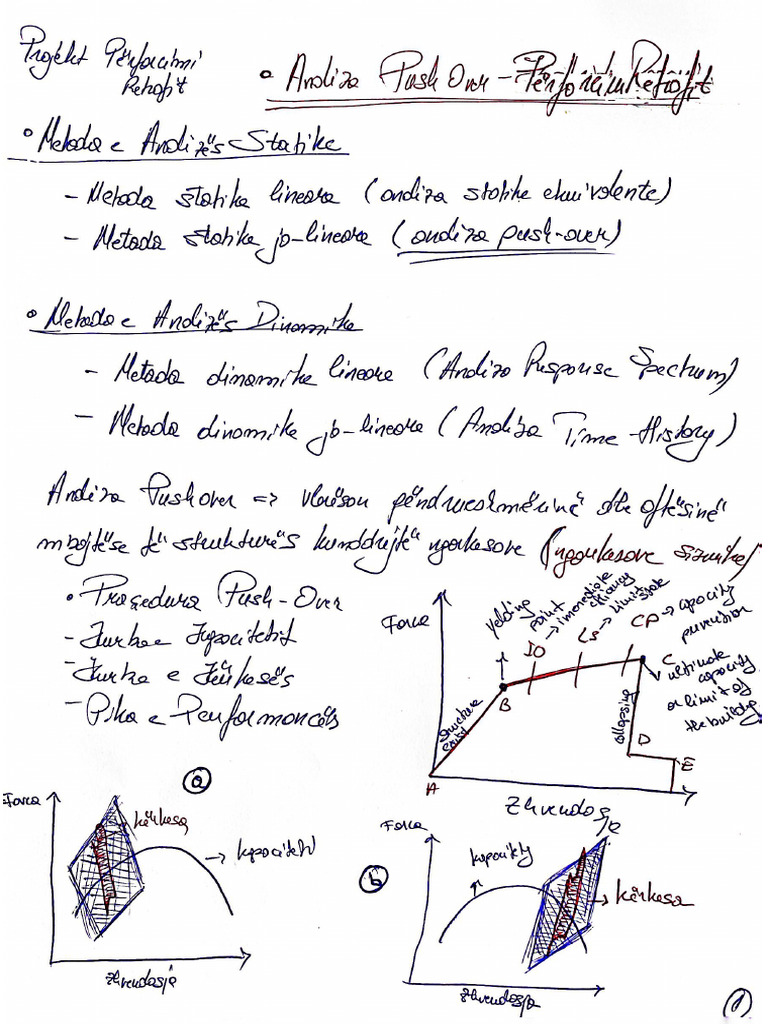 Projekt Përforcimi
Retrofit
• Analiza Push Over - Përforcim Retrofit
• Metoda e Analizës Statike
- Metoda statike lineare (analiza statike ekuivalente)
- Metoda statike jo-lineare (analiza push-over)
• Metoda e Analizës Dinamike
- Metoda dinamike lineare (Analiza Response Spectrum)
- Metoda dinamike jo-lineare (Analiza Time-History)
Analiza Pushover => vlerëson qëndrueshmërinë dhe aftësinë
mbajtëse të strukturës kundrejt ngarkesave (ngarkesave sizmike)
• Proçedura Push-Over
- Kurba e Kapacitetit
- Kurba e Kërkesës
- Pika e Performancës
Forca
yielding point
IO → immediate
LS → limit state
CP → capacity
prevention
C
ultimate
capacity
or limit of
the building
B
Structure
collapsing
D
E
A
Zhvendosje
a
Forca
kërkesa
kapaciteti
Zhvendosje
b
Forca
kapaciteti
kërkesa
Zhvendosje
1